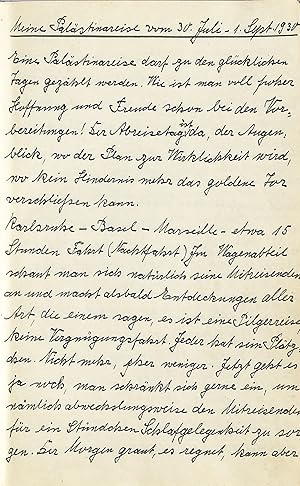 Meine Palästinareise vom 30. Juli - 1. Sept. 1930
Eine Palästinareise darf zu den glücklichen
Tagen gezählt werden. Wie ist man voll froher
Hoffnung und Freude schon bei den Vor-
bereitungen! Der Abreisetag ist da, der Augen,
blick, wo der Plan zur Wirklichkeit wird,
wo kein Hindernis mehr das goldene Tor
verschließen kann.
Karlsruhe – Basel – Marseille – etwa 15
Stunden Fahrt (Nachtfahrt) Im Wagenabteil
schaut man sich natürlich seine Mitreisenden
an und macht alsbald Entdeckungen aller
Art, die einem sagen, es ist eine Pilgerreise
keine Vergnügungsfahrt. Jeder hat sein Plätz
chen. Nicht mehr, eher weniger. Jetzt geht es
ja noch, man schränkt sich gerne ein, um
nämlich abwechslungsweise den Mitreisenden
für ein Stündchen Schlafgelegenheit zu sor
gen. Der Morgen graut, es regnet, kann aber